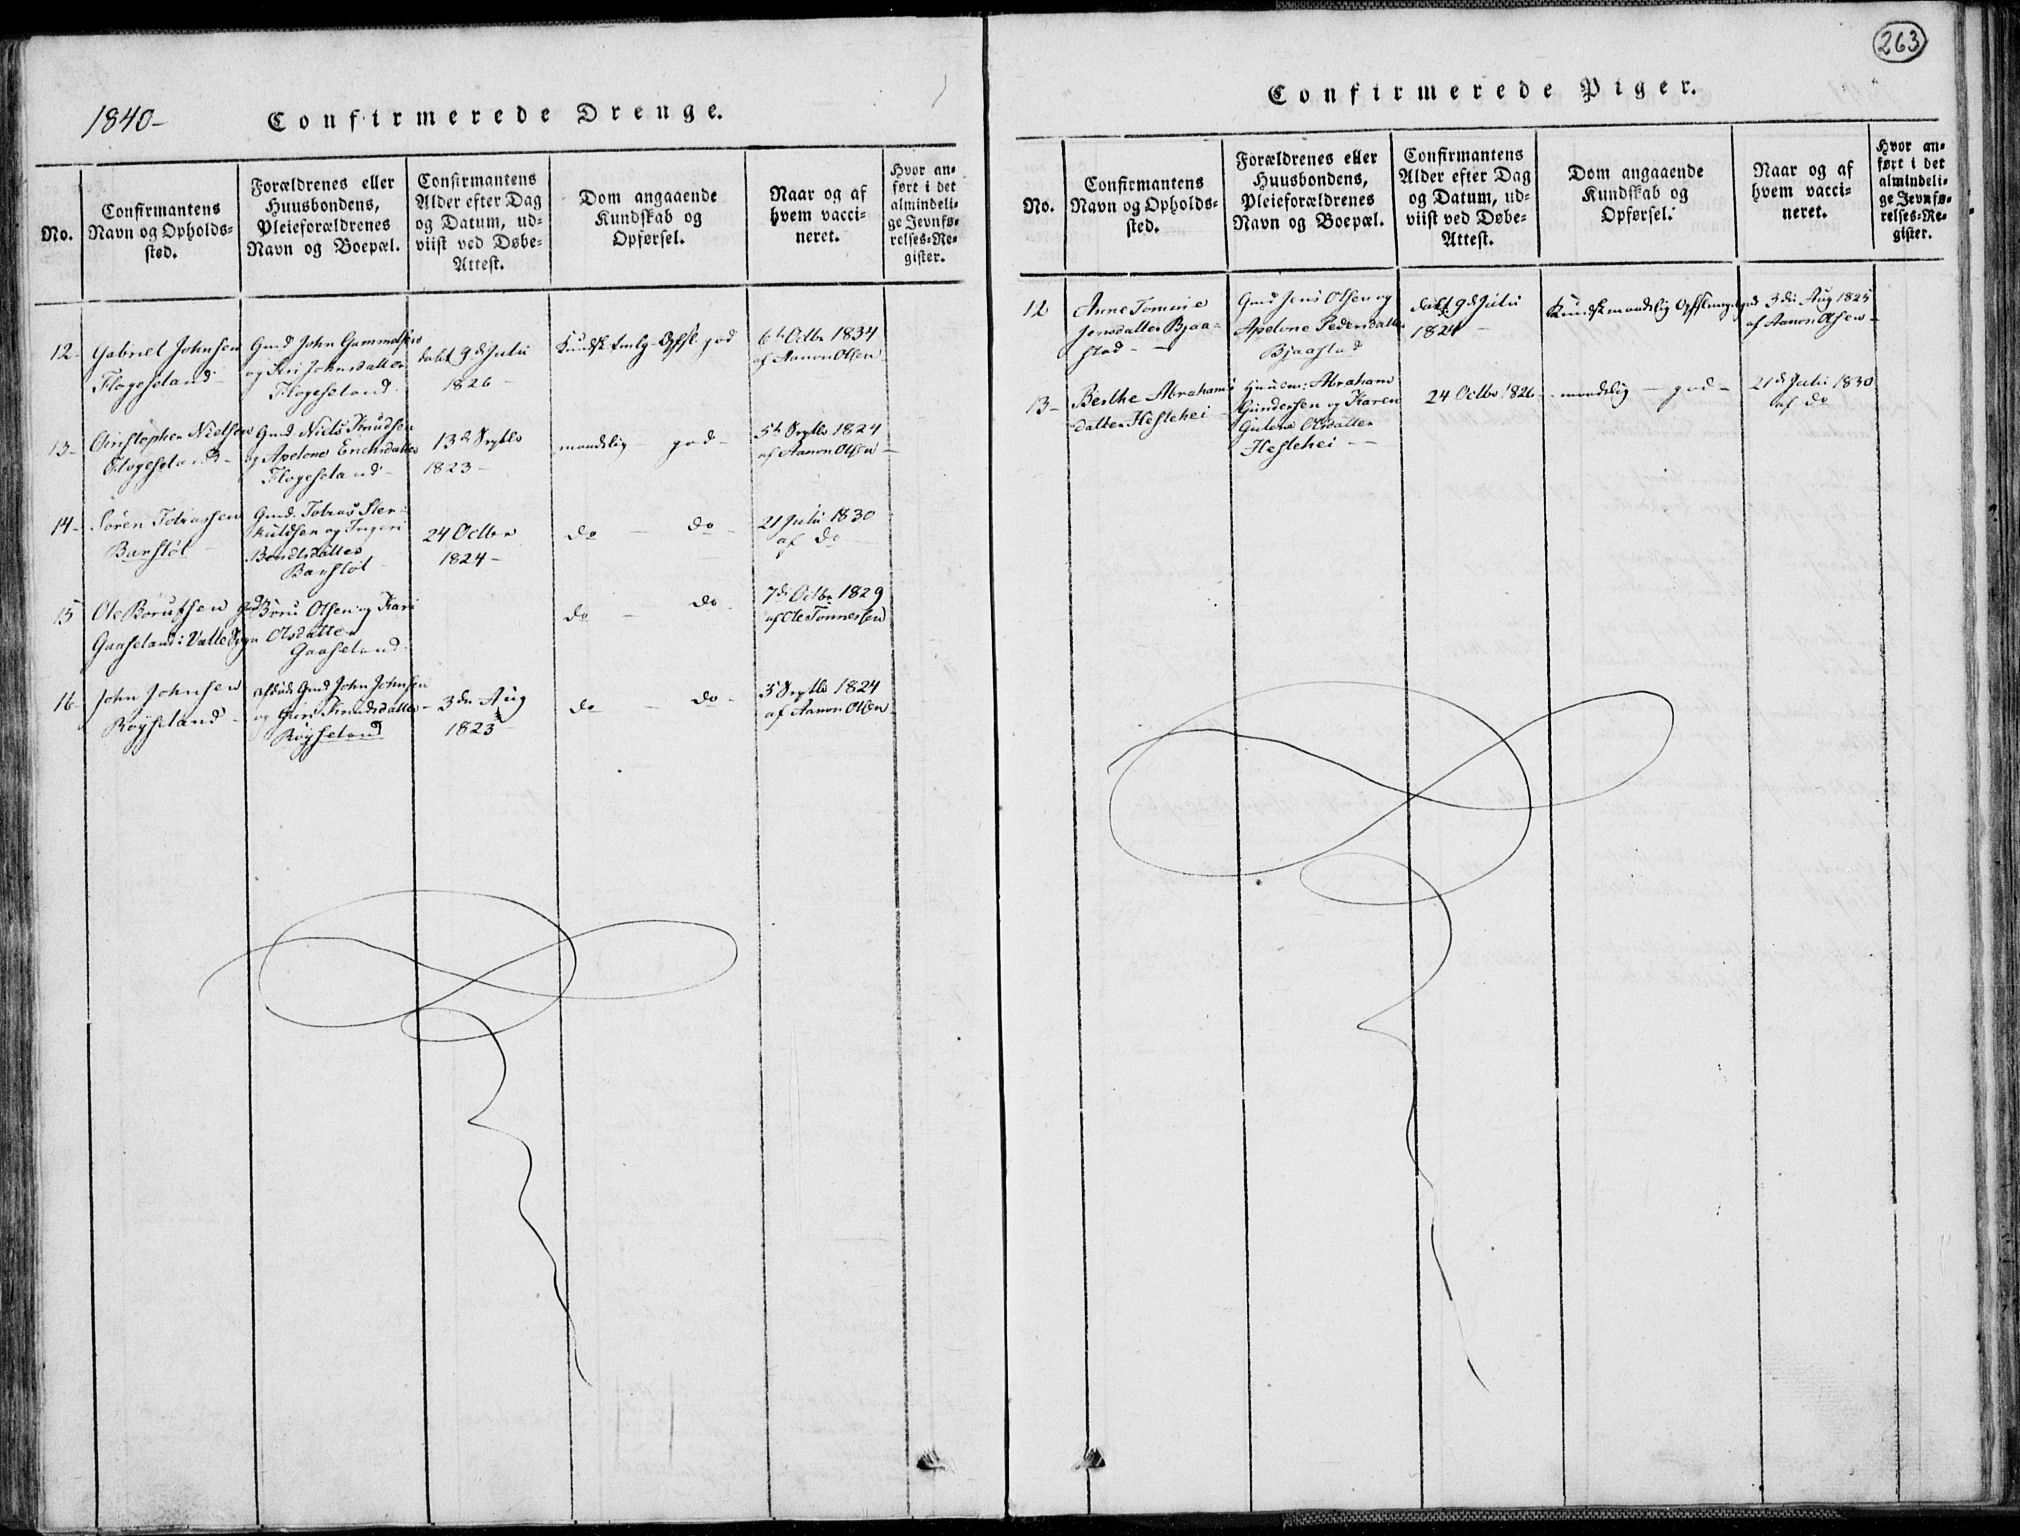 1840-
Confirmerede Drenge.
No.
Confirmantens
Navn og Opholds-
sted.
Forældrenes eller
Huusbondens,
Pleieforældrenes
Navn og Boepæl.
Confirmantens
Alder efter Dag
og Datum, ud-
viist ved Døbe-
Attest.
Dom angaaende
Kundskab og
Opførsel.
Naar og af
hvem vacci-
neret.
Hvor an-
ført i det
almindeli-
ge Jevnfø-
relses-Re-
gister.
12-
Gabriel Johnsen
Flageseland-
Gmd John Gummelsen
og Siri Johnsdatter
Flogeseland.
døbt 9d Julii
1826-
Kundsk. tmlg- Opfsl- god
6te Octbr 1834
af Aanon Olsen
13-
Christopher Nielsen
Flogeseland-
Gmd Niels Knudsen
og Apelone Erichsdatter
Flogeseland-
13de Septbr
1823-
maadelig - god-
5te Septbr 1824
af Aanon Olsen-
14-
Søren Tobiassen
Banstöl-
Gmd. Tobias Ster-
kuldsen og Ingeri
Bendtsdatter
Banstöl-
24 Octbr
1824-
do - do-
21 Julii 1830
af do-
15
Ole Börufsen
Gaaseland i Valle Sogn
Gmd Böru Olsen og Kari
Olsdatter
Gaaseland.
do - do-
7de Octbr 1829
af Ole Tönnessen
16-
John Johnsen
Röyseland-
afdøde Gmd John Johnsen
og Guri Knudsdatter-
Röyseland
3die Aug
1823-
do - do-
5 Septbr 1824
af Aanon Olsen
263
Confirmerede Piger.
No.
Confirmantens
Navn og Opholds-
sted.
Forældrenes eller
Huusbondens,
Pleieforældrenes
Navn og Boepæl.
Confirmantens
Alder efter Dag
og Datum, ud-
viist ved Døbe-
Attest.
Dom angaaende
Kundskab og
Opførsel.
Naar og af
hvem vacci-
neret.
Hvor an-
ført i det
almindeli-
ge Jevnfø-
relses-Re-
gister.
12
Anne Tomine
Jensdatter Bjaa-
stad-
Gmd Jens Olsen og
Apelone Pedersdatter
Bjaastad
døbt 9d Julii
1824-
Kundsk maadelig Opfsl god
3die Aug 1825
af Aanon Olsen-
13-
Berthe Abrahams
datter Heslehei-
Huusm: Abraham
Gundersen og Karen
Gulene Olsdatter
Heslehei--
24 Octbr 1826-
maadelig - god-
21de Julii 1830
af do